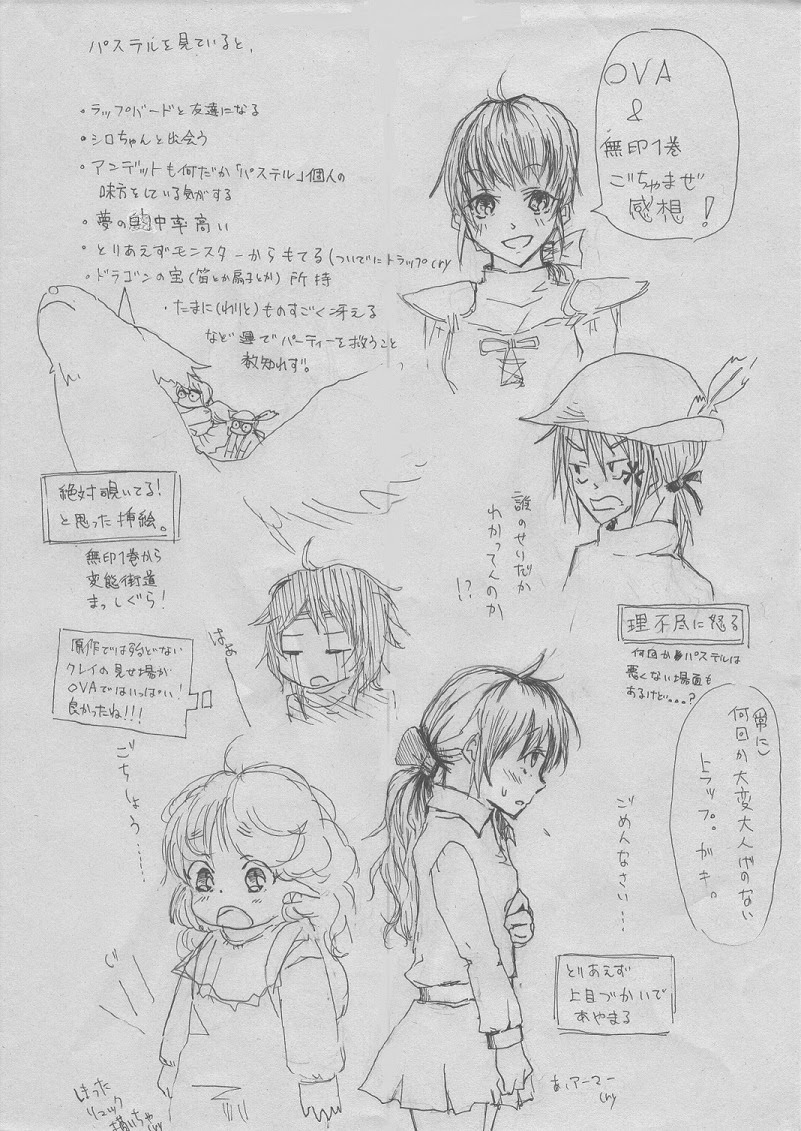 パステルを見ていると、
・ラップバードと友達になる
・シロちゃんと出会う
・アンデットも何だか「パステル」個人の
味方をしている気がする
・夢の的中率高い
・とりあえずモンスターからもてる(ついでにトラップ cry
・ドラゴンの宝(笛とか扇子とか)所持
・たまに(わりと)ものすごく冴える
など運でパーティーを救うこと
数知れず。
OVA
&
無印1巻
ごちゃまぜ
感想!
絶対覗いてる!
と思った挿絵。
無印1巻から
変態街道
まっしぐら!
誰のせいだか
わかってんのか
!?
理不尽に怒る
何回かパステルは
悪くない場面も
あるけど。。。?
原作では殆どない
クレイの見せ場が
OVAではいっぱい!
良かったね!!!
はぁ
(常に)
何回か大変大人げのない
トラップ。ガキ。
ごちょう……
ごめんなさい…
とりあえず
上目づかいで
あやまる
じー
しまった
リュック
描いちゃ
cry
あ、アーマー
cry